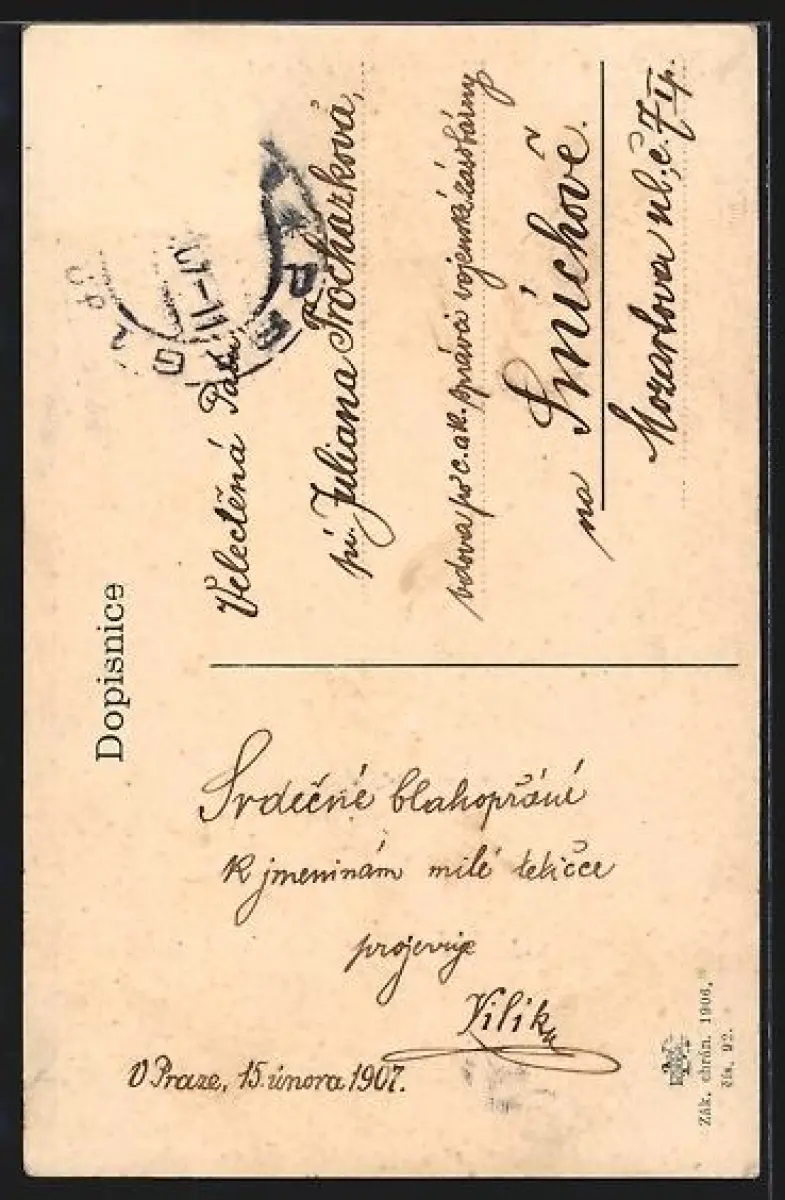 Dopisnice
Velectěná Paní
pí. Juliana Procházková,
vdova po c. a k. správci vojenské zásobárny
na Smíchově.
Mozartova ul; č. 7 IIp.
Srdečné blahopřání
k jmeninám milé tetičce
projevuje
Vilík
V Praze, 15. února 1907.
Zák. chrán. 1906,
čís. 92.